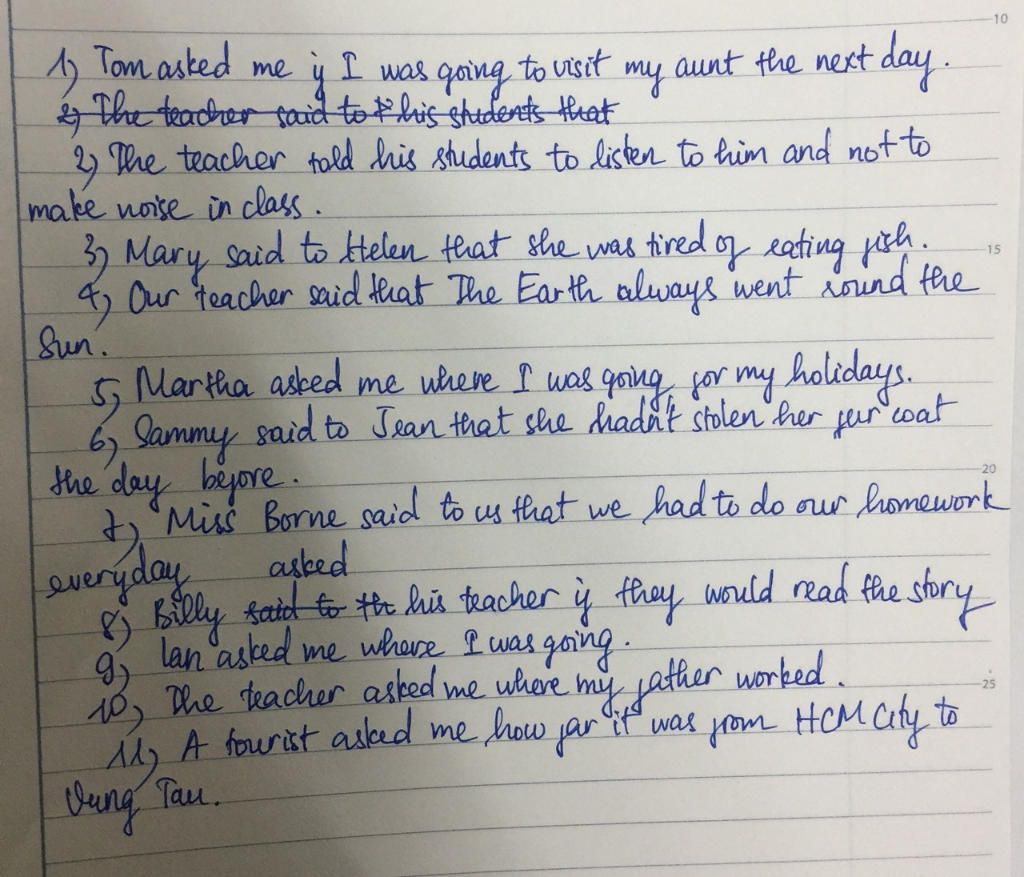 10
1) Tom asked me if I was going to visit my aunt the next day.
2) The teacher said to his students that
2) The teacher told his students to listen to him and not to
make noise in class.
3) Mary said to Helen that she was tired of eating fish.
15
4) Our teacher said that The Earth always went round the
Sun.
5) Martha asked me where I was going for my holidays.
6) Sammy said to Jean that she hadn't stolen her fur coat
the day before.
20
7) Miss Borne said to us that we had to do our homework
everyday
asked
8) Billy said to th his teacher if they would read the story
9) Lan asked me where I was going.
10) The teacher asked me where my father worked.
25
11) A tourist asked me how far it was from HCM City to
Vung Tau.